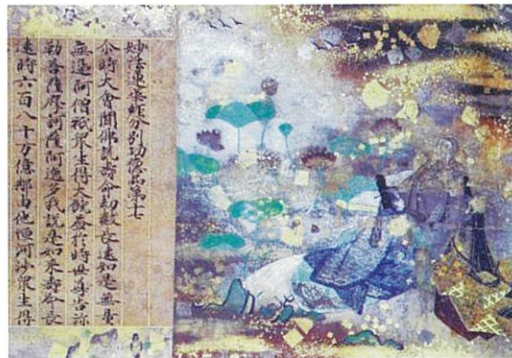 妙法蓮華経分別功徳品第七
尒時大會聞佛説壽命劫數長遠如是無量
無邊阿僧祇衆生得大饒益於時世尊告弥
勒菩薩摩訶薩阿逸多我説是如来壽命長
遠時六百八十万億那由他恒河沙衆生得